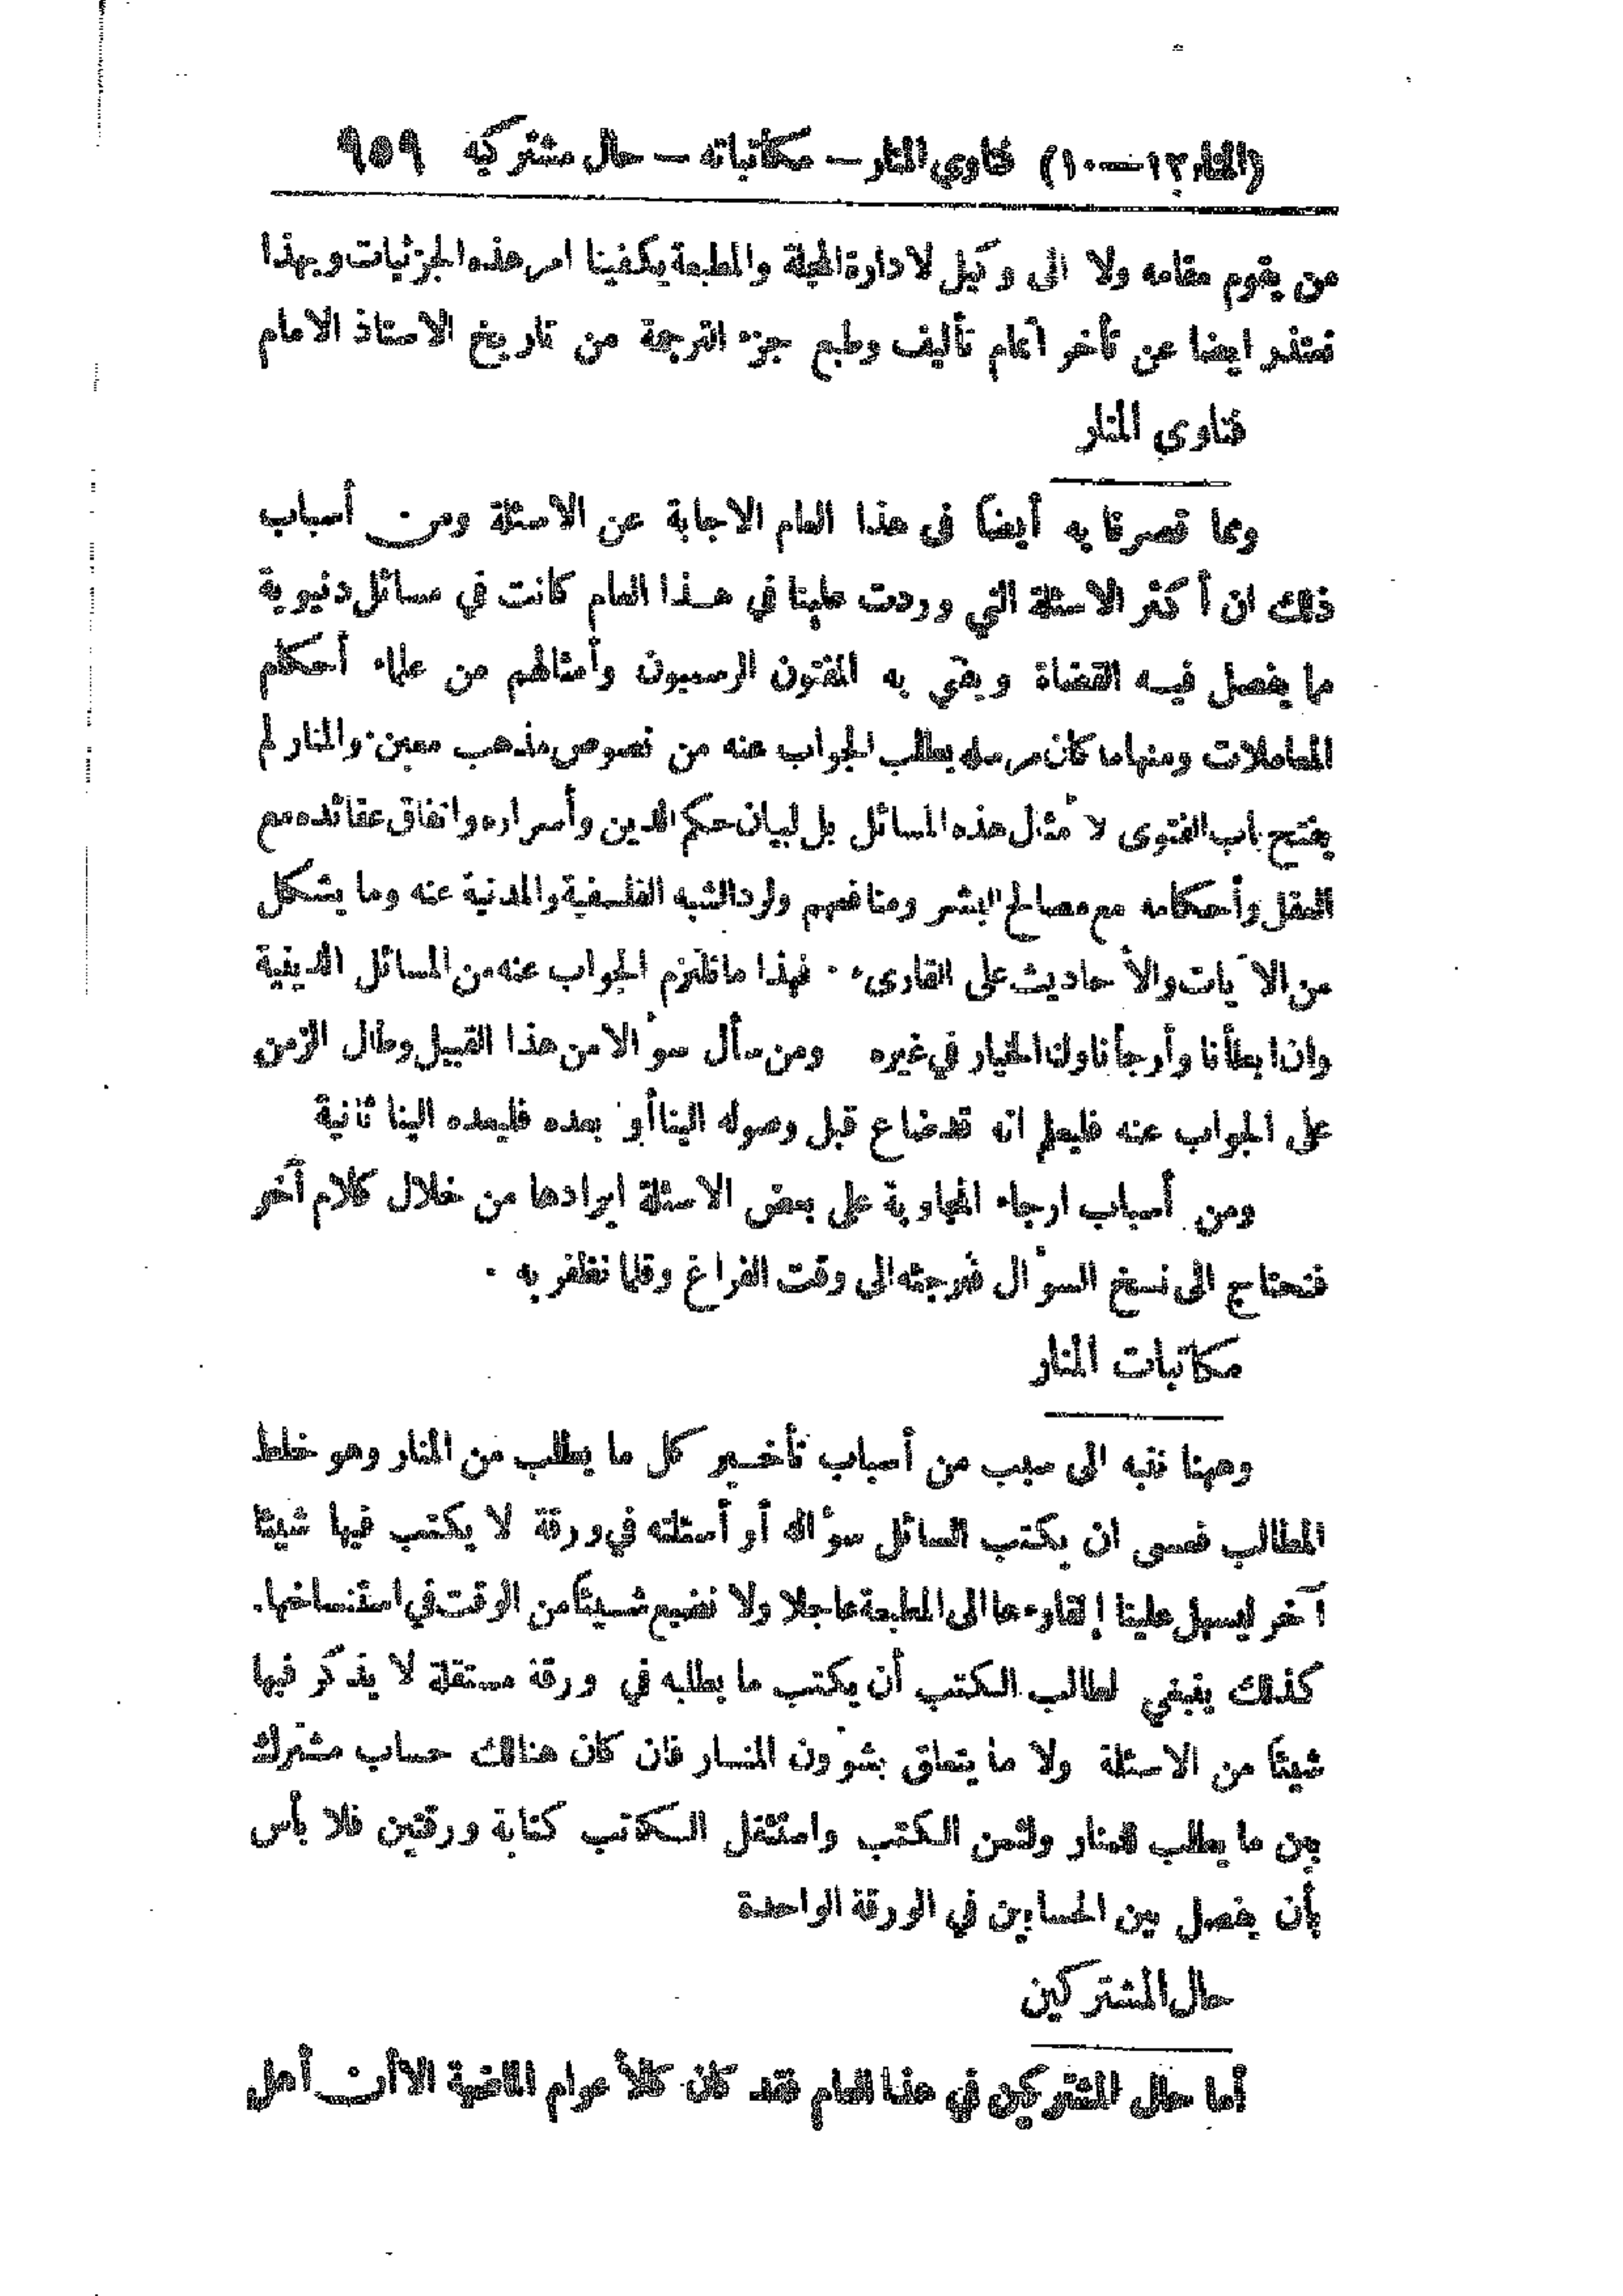 (المنار ١٢—١٠) فتاوي المنار — مكاتباته — حال مشتركيه ٩٥٩
من يقوم مقامه ولا الى وكيل لادارة المجلة والمطبعة يكفينا امر هذه الجزئيات وبهذا
نعتذر ايضا عن تأخر اتمام تأليف وطبع جزء الترجمة من تاريخ الاستاذ الامام
فتاوي المنار
ومما قصرنا به أيضاً في هذا العام الاجابة عن الاسئلة ومن أسباب
ذلك ان أكثر الاسئلة التي وردت علينا في هذا العام كانت في مسائل دنيوية
مما يفصل فيه القضاة ويفتي به المفتون الرسميون وأمثالهم من علماء أحكام
المعاملات ومنها ما كان مرسله يطلب الجواب عنه من نصوص مذهب معين. والمنار لم
يفتح باب الفتوى لأمثال هذه المسائل بل لبيان حكم الدين وأسراره واتفاق عقائده مع
العقل وأحكامه مع مصالح البشر ومنافعهم ولرد الشبه الفلسفية والمدنية عنه وما يشكل
من الآيات والأحاديث على القارىء. فهذا ما نلتزم الجواب عنه من المسائل الدينية
وان ابطأنا وأرجأنا ولنا الخيار في غيره ومن سأل سؤالا من هذا القبيل وطال الزمن
على الجواب عنه فليعلم انه قد ضاع قبل وصوله الينا أو بعده فليعده الينا ثانية
ومن أسباب ارجاء المجاوبة على بعض الاسئلة ايرادها من خلال كلام آخر
فنحتاج الى نسخ السؤال فنرجئه الى وقت الفراغ وقلما نظفر به .
مكاتبات المنار
وههنا ننبه الى سبب من أسباب تأخير كل ما يطلب من المنار وهو خلط
المطالب فعسى ان يكتب السائل سؤاله أو أسئلته في ورقة لا يكتب فيها شيئا
آخر ليسهل علينا إلقاؤها الى المطبعة عاجلا ولا نضيع شيئاً من الوقت في استنساخها.
كذلك ينبغي لطالب الكتب أن يكتب ما يطلبه في ورقة مستقلة لا يذكر فيها
شيئاً من الاسئلة ولا ما يتعلق بشؤون المنار فان كان هنالك حساب مشترك
بين ما يطلب للمنار ولثمن الكتب واستثقل الكاتب كتابة ورقتين فلا بأس
بأن يفصل بين الحسابين في الورقة الواحدة
حال المشتركين
أما حال المشتركين في هذا العام فقد كان كالأعوام الماضية الا أن أهل